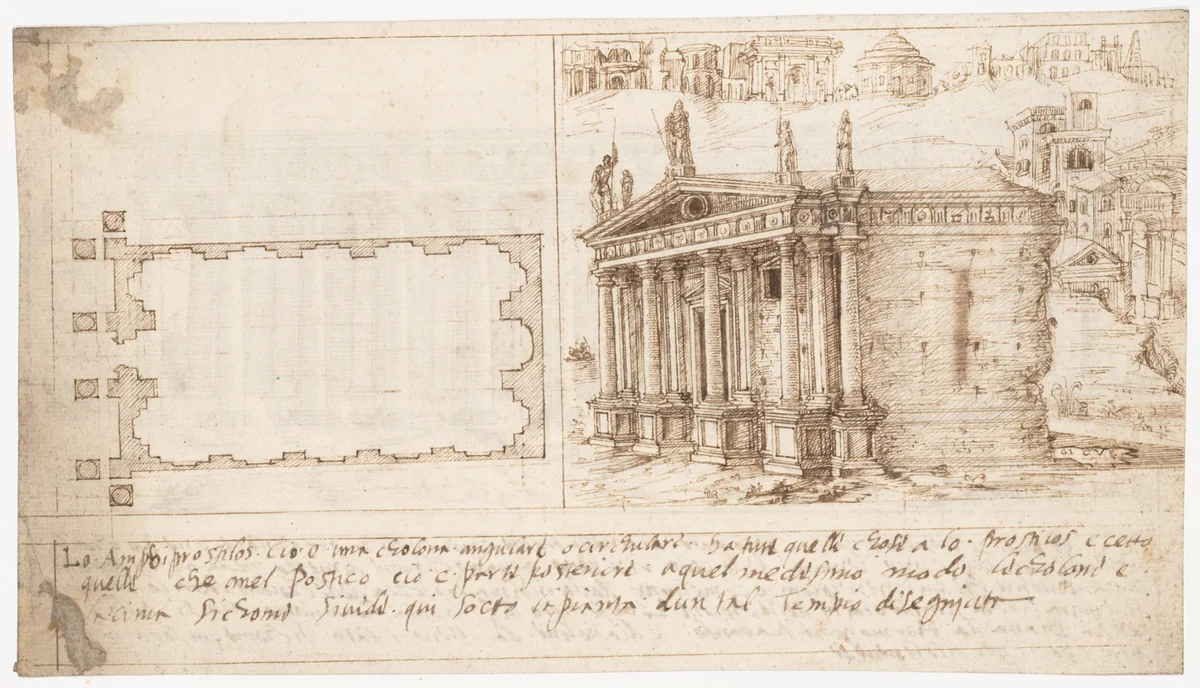 Lo Amphiprostilos cio e una cholona angulare o circhulare ha tute quelle chose a lo prostilos ecetto
quelle che a nel postico cio e parte posteriore a quel medesimo modo le cholone e
cima sichome si vide qui socto la pianta d un tal tempio disegniata